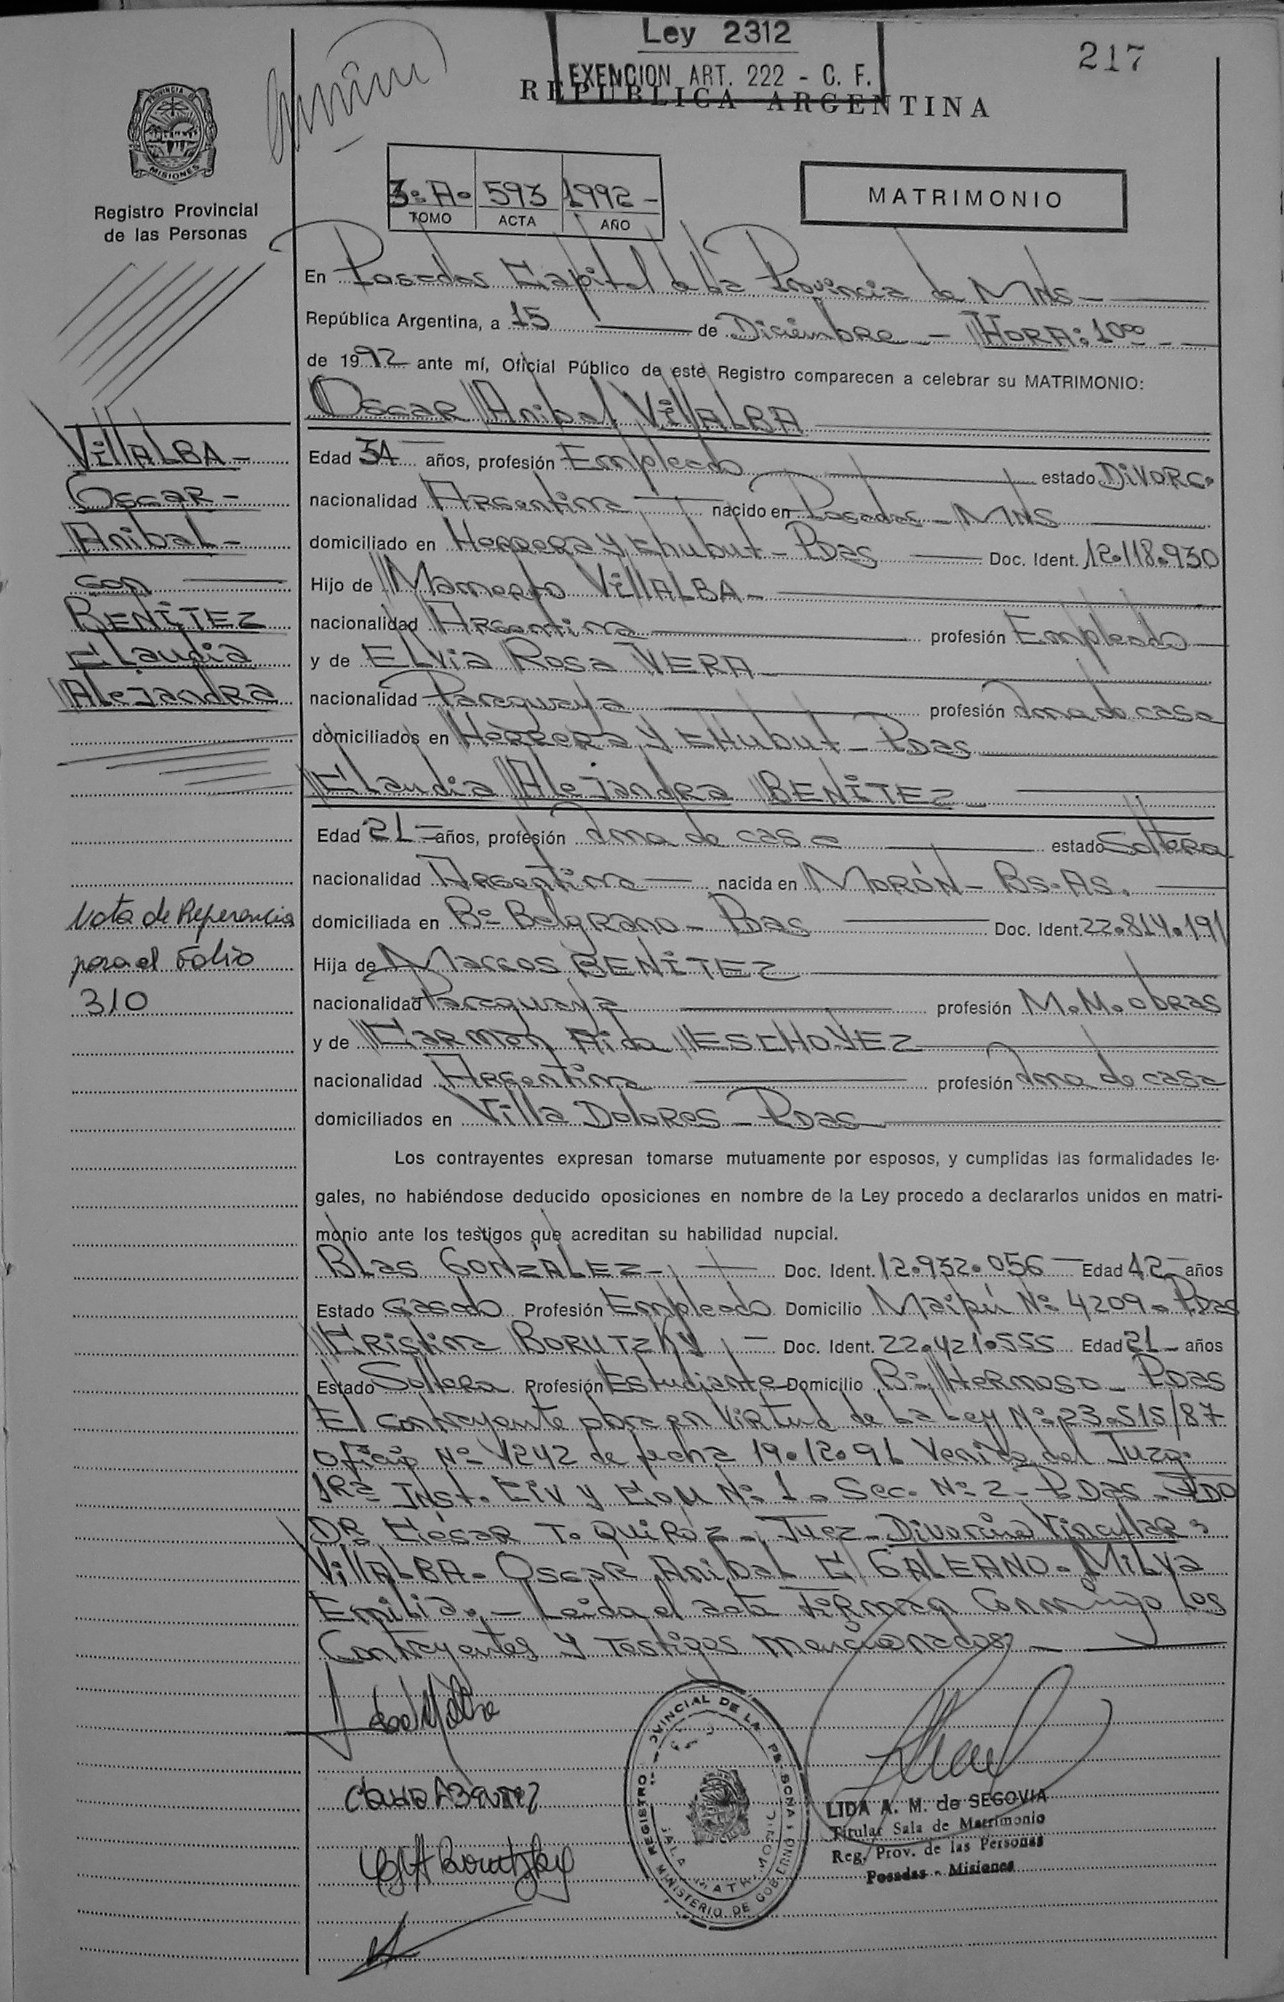 Ley 2312
EXENCION ART. 222 - C. F.
217
REPUBLICA ARGENTINA
PROVINCIA DE
MISIONES
Registro Provincial
de las Personas
3º A. 593 1992 -
TOMO ACTA AÑO
MATRIMONIO
En Posadas Capital de La Provincia de MNS -
República Argentina, a 15 de Diciembre - HORA: 10⁰⁰ -
de 1992 ante mí, Oficial Público de este Registro comparecen a celebrar su MATRIMONIO:
Oscar Anibal VILLALBA
VILLALBA -
OSCAR -
Anibal -
con
BENITEZ
Claudia
Alejandra
Edad 34 años, profesión Empleado estado DIVORC.
nacionalidad Argentina nacido en Posadas - MNS
domiciliado en Herrera y Chubut - Pdas Doc. Ident. 12.118.930
Hijo de Mamerto VILLALBA -
nacionalidad Argentina profesión Empleado
y de ELVIA Rosa VERA
nacionalidad Paraguaya profesión Ama de casa
domiciliados en Herrera y Chubut - Pdas
Claudia Alejandra BENITEZ -
Edad 21 - años, profesión Ama de casa estado Soltera
nacionalidad Argentina - nacida en MORÓN - Bs. As.
domiciliada en Bº Belgrano - Pdas Doc. Ident. 22.814.191
Hija de Marcos BENITEZ
nacionalidad Paraguaya profesión M. M. obras
y de Carmen Aida ESCHOYEZ
nacionalidad Argentina profesión Ama de casa
domiciliados en Villa Dolores - Pdas
Nota de Referencia
para el Folio
310
Los contrayentes expresan tomarse mutuamente por esposos, y cumplidas las formalidades le-
gales, no habiéndose deducido oposiciones en nombre de la Ley procedo a declararlos unidos en matri-
monio ante los testigos que acreditan su habilidad nupcial.
BLAS GONZÁLEZ - Doc. Ident. 12.932.056 - Edad 42 - años
Estado Casado Profesión Empleado Domicilio Maipú Nº 4209 - Pdas
Cristina BORUTZKY - Doc. Ident. 22.421.555 Edad 21 - años
Estado Soltera Profesión Estudiante Domicilio Bº Hermoso - Pdas
El contrayente obra en Virtud de La Ley Nº 23.515/87
oficio Nº 1242 de fecha 19.12.91 Venido del Juzg.
1ra Inst. Civ y Com Nº 1. Sec. Nº 2 - Pdas - FDO
DR. César T. QUIROZ - Juez - Divorcio Vincular:
VILLALBA - Oscar Anibal C/ GALEANO - Milva
Emilia. - Leida el acta Firman Conmigo los
Contrayentes y Testigos mencionados -
REGISTRO PROVINCIAL DE LAS PERSONAS
SALA MATRIMONIO
MINISTERIO DE GOBIERNO
LIDA A. M. de SEGOVIA
Titular Sala de Matrimonio
Reg. Prov. de las Personas
Posadas - Misiones